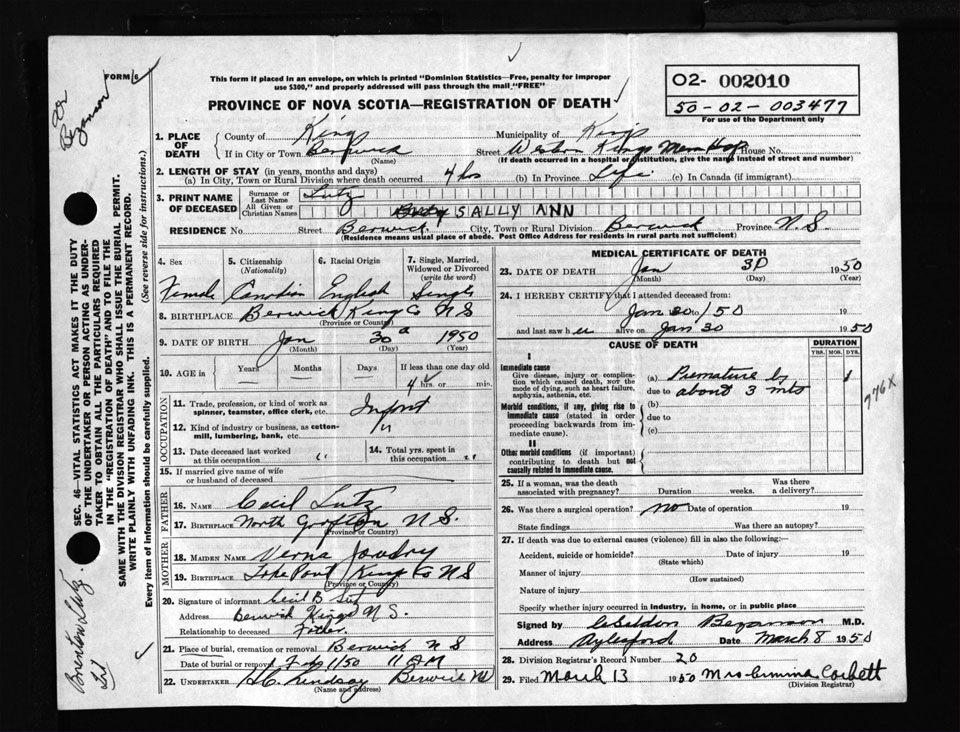 FORM 6
This form if placed in an envelope, on which is printed "Dominion Statistics—Free, penalty for improper
use $300," and properly addressed will pass through the mail "FREE"
PROVINCE OF NOVA SCOTIA—REGISTRATION OF DEATH
O2- 002010
50-02-003477
For use of the Department only
1. PLACE OF DEATH
County of Kings Municipality of Kings
If in City or Town Berwick Street Western Kings Mem Hosp House No.
(Name) (If death occurred in a hospital or institution, give the name instead of street and number)
2. LENGTH OF STAY (in years, months and days)
(a) In City, Town or Rural Division where death occurred 4 hrs (b) In Province Life (c) In Canada (if immigrant)
3. PRINT NAME OF DECEASED
Surname or Last Name Lutz
All Given or Christian Names SALLY ANN
RESIDENCE No. Street Berwick City, Town or Rural Division Berwick Province N.S.
(Residence means usual place of abode. Post Office Address for residents in rural parts not sufficient)
4. Sex Female
5. Citizenship (Nationality) Canadian
6. Racial Origin English
7. Single, Married, Widowed or Divorced (write the word) Single
8. BIRTHPLACE Berwick Kings Co NS
(Province or County)
9. DATE OF BIRTH Jan 30 1950
(Month) (Day) (Year)
10. AGE in Years Months Days If less than one day old
4 hrs. or min.
OCCUPATION
11. Trade, profession, or kind of work as
spinner, teamster, office clerk, etc. Infant
12. Kind of industry or business, as cotton-
mill, lumbering, bank, etc. "
13. Date deceased last worked
at this occupation "
14. Total yrs. spent in
this occupation "
15. If married give name of wife
or husband of deceased
FATHER
16. NAME Cecil Lutz
17. BIRTHPLACE North Grafton N.S.
(Province or County)
MOTHER
18. MAIDEN NAME Verna Joudry
19. BIRTHPLACE Kings Co NS
(Province or County)
20. Signature of informant Cecil B Lutz
Address Berwick Kings N S.
Relationship to deceased Father.
21. Place of burial, cremation or removal Berwick N S
Date of burial or removal Feb 1/50
22. UNDERTAKER H.C. Lindsay Berwick NS
(Name and address)
MEDICAL CERTIFICATE OF DEATH
23. DATE OF DEATH Jan 30 1950
(Month) (Day) (Year)
24. I HEREBY CERTIFY that I attended deceased from:
Jan 30 to / 50 19
and last saw her alive on Jan 30 1950
CAUSE OF DEATH DURATION
YRS. MOS. DYS.
I
Immediate cause
Give disease, injury or complica-
tion which caused death, not the
mode of dying, such as heart failure,
asphyxia, asthenia, etc.
(a) Premature by
due to about 3 mts
Morbid conditions, if any, giving rise to
immediate cause (stated in order
proceeding backwards from im-
mediate cause).
(b)
due to
(c)
II
Other morbid conditions (if important)
contributing to death but not
causally related to immediate cause.
776X
25. If a woman, was the death
associated with pregnancy? Duration weeks. Was there a delivery?
26. Was there a surgical operation? no Date of operation 19
State findings Was there an autopsy?
27. If death was due to external causes (violence) fill in also the following:—
Accident, suicide or homicide? Date of injury 19
(State which)
Manner of injury
(How sustained)
Nature of injury
Specify whether injury occurred in industry, in home, or in public place
Signed by Bezanson M.D.
Address Aylesford Date March 8 1950
28. Division Registrar's Record Number 20
29. Filed March 13 1950 Mrs Ermina Corbett
(Division Registrar)
SEC. 46—VITAL STATISTICS ACT MAKES IT THE DUTY
OF THE UNDERTAKER OR PERSON ACTING AS UNDER-
TAKER TO OBTAIN ALL THE PARTICULARS REQUIRED
IN THE "REGISTRATION OF DEATH" AND TO FILE THE
SAME WITH THE DIVISION REGISTRAR WHO SHALL ISSUE THE BURIAL PERMIT.
WRITE PLAINLY WITH UNFADING INK. THIS IS A PERMANENT RECORD.
Every item of information should be carefully supplied. (See reverse side for instructions.)
Dr Bezanson
Brenton Lutz.